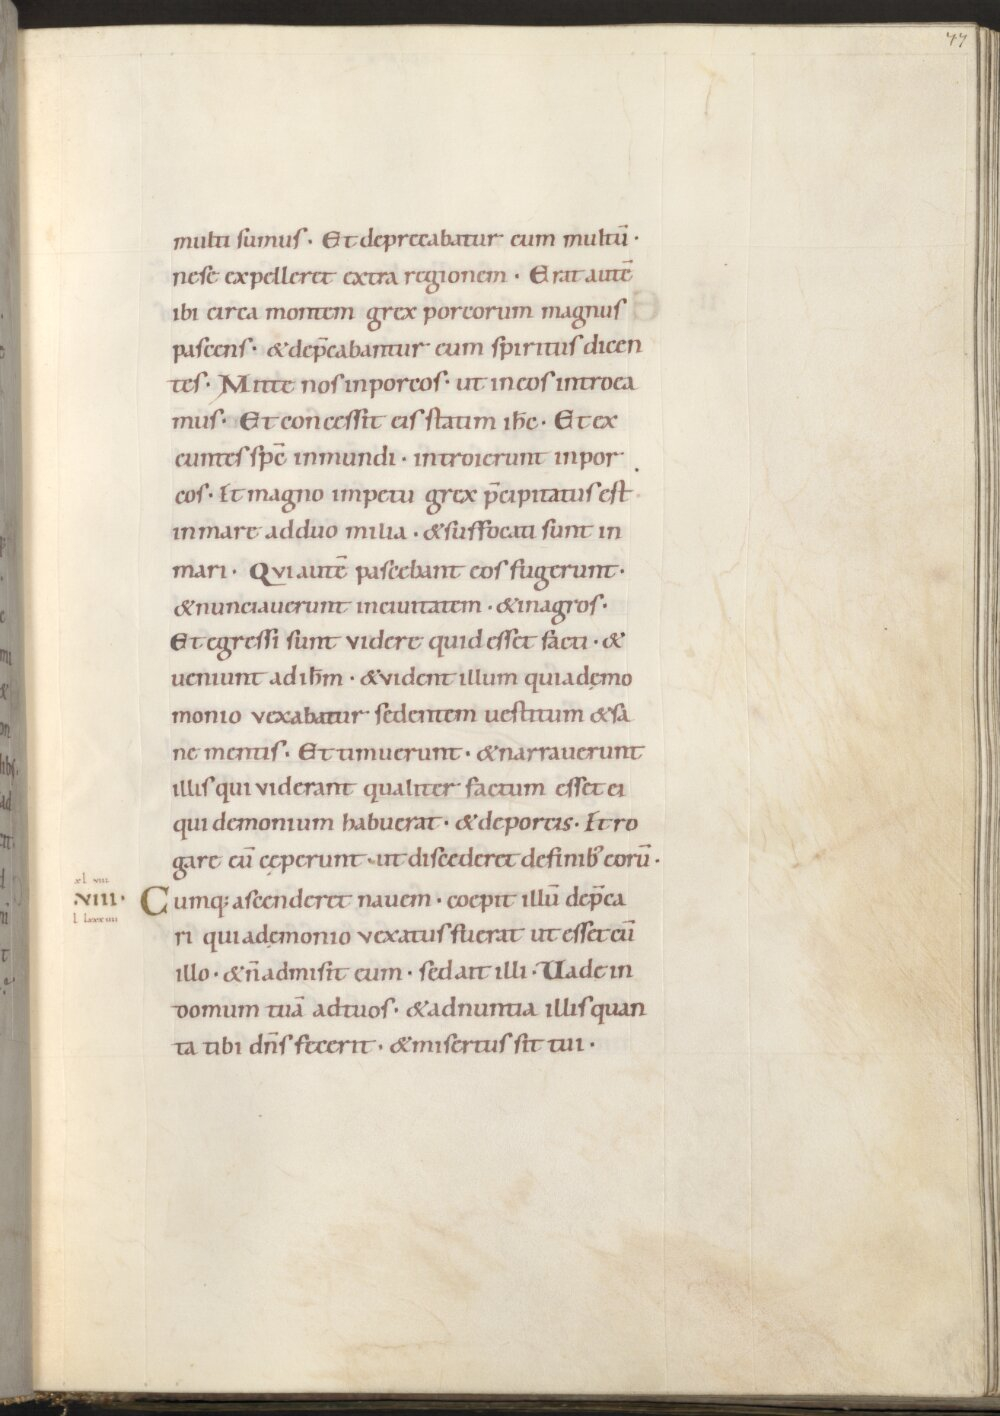 77
multi sumus · Et deprecabatur eum multū ·
nese expelleret extra regionem · Erat autē
ibi circa montem grex porcorum magnus
pascens · & dep̄cabantur eum spiritus dicen
tes · Mitte nos inporcos · ut ineos introea
mus · Et concessit eis statim ihc̄ · Et ex
euntes spc̄ inmundi · introierunt inpor
cos · Et magno impetu grex p̄cipitatus est
inmare adduo milia · & suffocati sunt in
mari · Qui autē pascebant eos fugerunt ·
& nunciaverunt inciuitatem · & inagros ·
Et egressi sunt videre quid esset facti · &
ueniunt ad ihm̄ · & vident illum qui ademo
monio vexabatur sedentem uestitum & sa
ne mentis · Et timuerunt · & narrauerunt
illis qui viderant qualiter factum esset ei
qui demonium habuerat · & deporcis · Et ro
gare eū cęperunt · ut discederet definib; eorū ·
xl viii
·VIII· Cumq; ascenderet nauem · coepit illū dep̄ca
l lxxiiii
ri qui adęmonio vexatus fuerat ut esset cū
illo · & n̄ admisit eum · sed ait illi · Uade in
domum tuā adtuos · & adnuntia illis quan
ta tibi dn̄s fecerit · & misertus sit tui ·